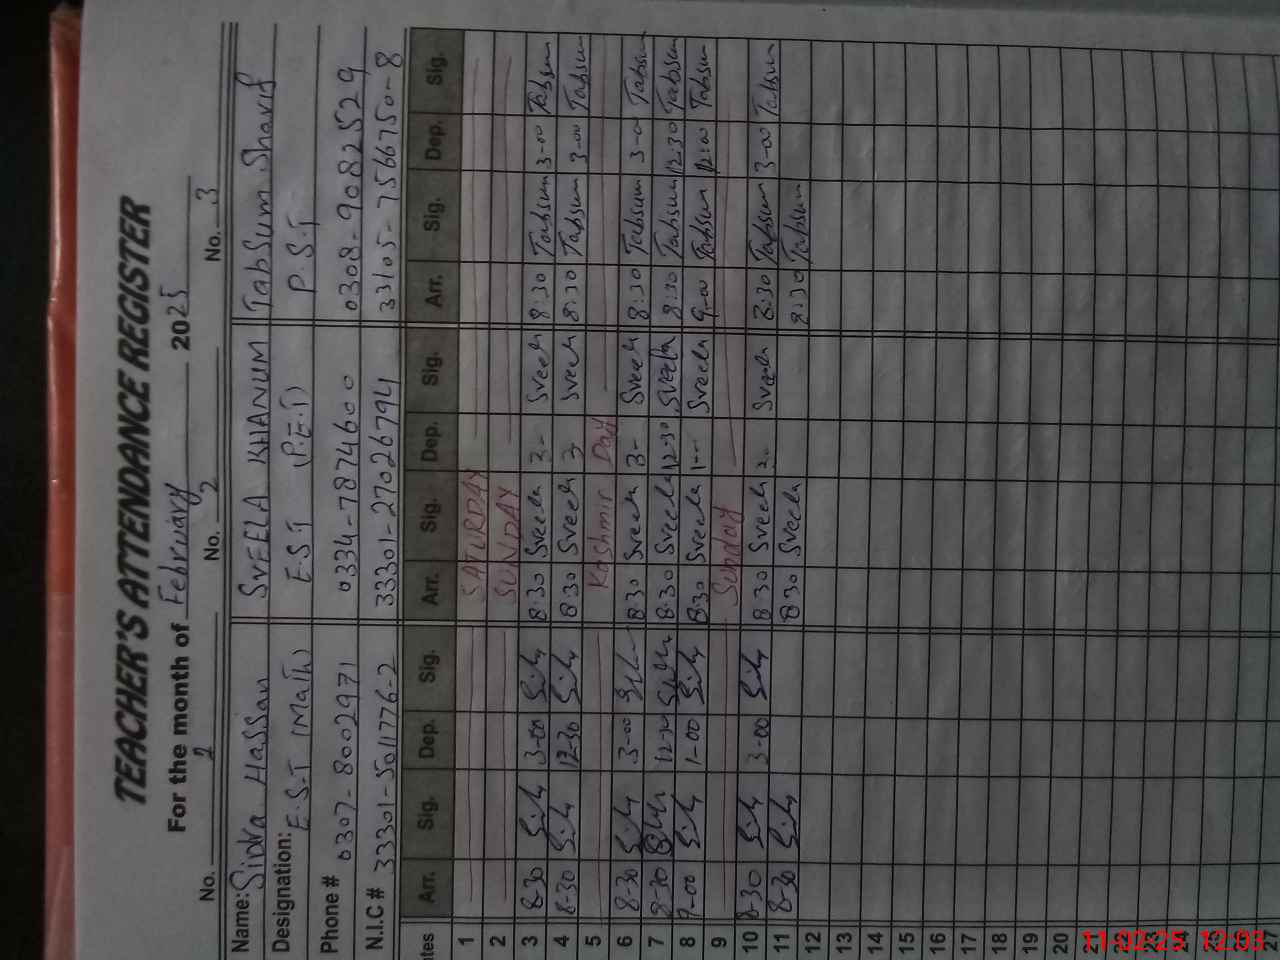 TEACHER'S ATTENDANCE REGISTER
For the month of February 2025
No. 2 No. 2 No. 3
Name: Sidra Hassan SVEELA KHANUM Tabsum Sharif
Designation: E.S.T (Math) E.S.T (P.E.T) P.S.T
Phone # 0307-8002971 0334-7874600 0308-9082529
N.I.C # 33301-5011776-2 33301-27026794 33105-7566750-8
tes Arr. Sig. Dep. Sig. Arr. Sig. Dep. Sig. Arr. Sig. Dep. Sig.
1 SATURDAY
2 SUNDAY
3 8-30 3-00 8:30 Sveela 3- Sveela 8:30 Tabsum 3-00 Tabsum
4 8-30 12-30 8.30 Sveela 3 Sveela 8:30 Tabsum 3-00 Tabsum
5 Kashmir Day
6 8-30 3-00 8.30 Sveela 3- Sveela 8:30 Tabsum 3-00 Tabsum
7 8-30 12-30 8.30 Sveela 12-30 Sveela 8:30 Tabsum 12:30 Tabsum
8 9-00 1-00 8.30 Sveela 1-- Sveela 9-00 Tabsum 12:00 Tabsum
9 Sunday
10 8-30 3-00 8.30 Sveela Sveela 8:30 Tabsum 3-00 Tabsum
11 8-30 8.30 Sveela 8:30 Tabsum
12
13
14
15
16
17
18
19
20
21
22
23
24
25
26
27
11-02-25 12:03